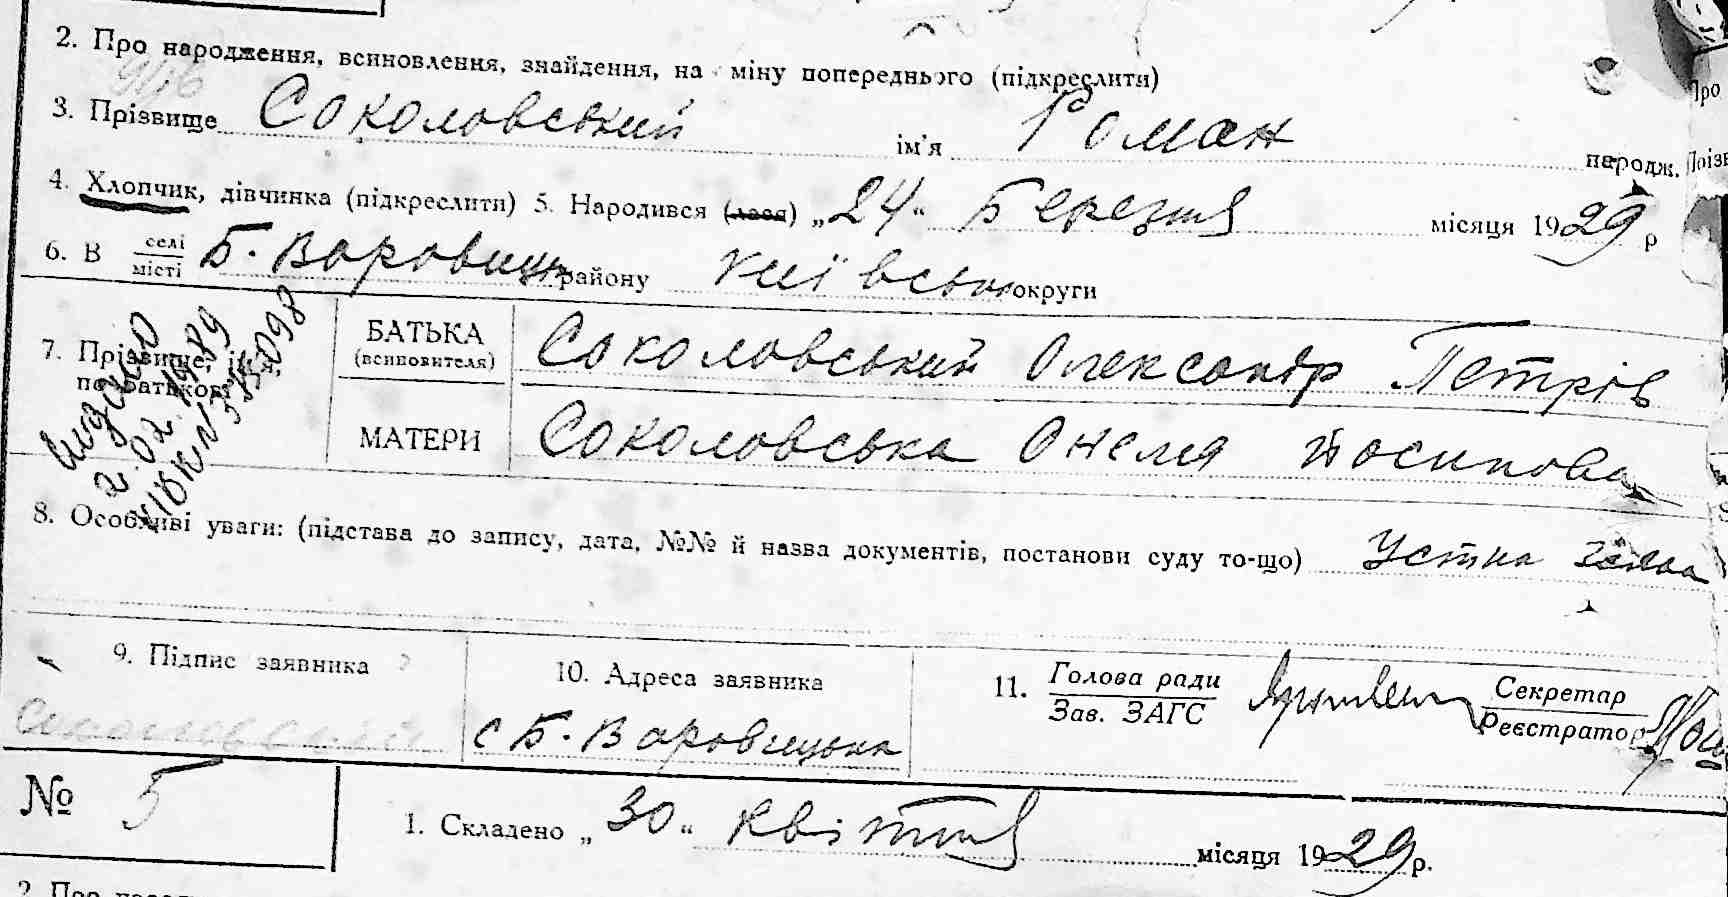 2. Про народження, всиновлення, знайдення, на міну попереднього (підкреслити)
3. Прізвище Соколовський ім'я Роман народж.
4. Хлопчик, дівчинка (підкреслити) 5. Народився (лася) „24“ Березня місяця 1929 р
6. В селі місті Б. Воровицьк району Київської округи
7. Прізвище, ім'я, по батькові
БАТЬКА (всиновителя) Соколовський Олександр Петрів
МАТЕРИ Соколовська Онелія Йосипова
Видано
2.02.1989
8. Особливі уваги: (підстава до запису, дата, №№ й назва документів, постанови суду то-що) Устна заява
9. Підпис заявника
Соколовский
10. Адреса заявника
с Б. Воровицька
11. Голова ради
Зав. ЗАГС
Секретар
Реєстратор
№ 5
1. Складено „30“ квітня місяця 1929 р.
Про